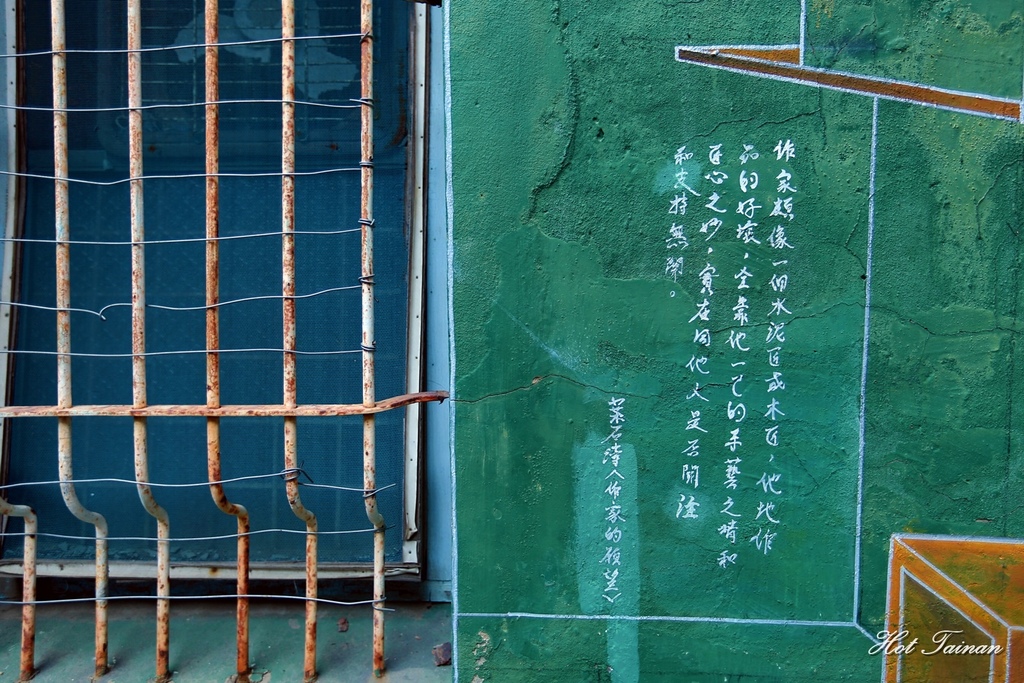 作家頗像一個水泥匠或木匠,他地作
品的好壞,全靠他一己的手藝之精和
匠心之妙,實在同他人是否關注
和支持無關。
葉石濤〈作家的願望〉
Hot Tainan